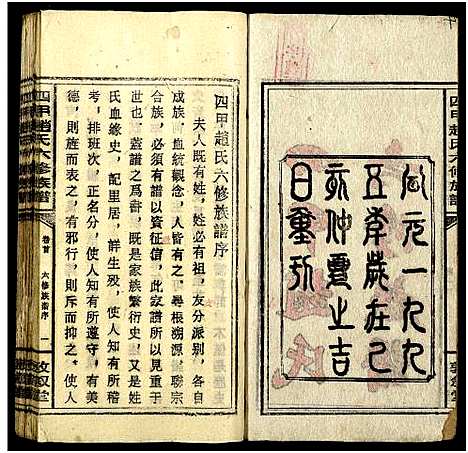 四甲趙氏六修族譜
敦叙堂
公元一九九
五年歲在乙
亥仲夏之吉
日重
四甲趙氏六修族譜序
夫人既有姓，姓必有祖，友分派别，各自
成族，血統觀念，人皆有之，尋根溯源，聯宗
合族，必須有譜以資征信，此家譜所以見重于
世也，蓋譜之爲書，既是家族繁衍史，又是姓
氏血緣史，配里居，詳生殁，使人知有所稽
考，排班次，正名分，使人知有所遵守，有美
德，則旌而表之，有邪行，則斥而抑之，使人
四甲趙氏六修族譜
卷首
六修族譜序
一
敦叙堂